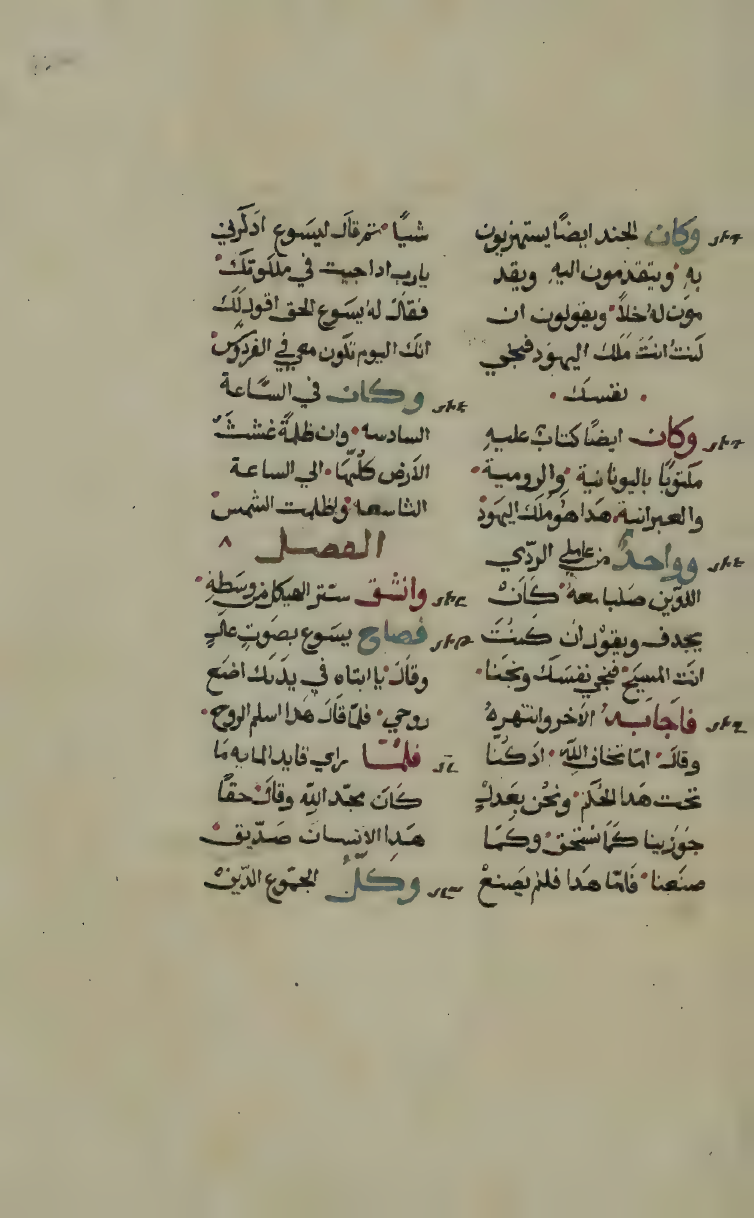 وكان الجند ايضًا يستهزيون
به ويتقدمون اليه ويقد
مون له خلاً ويقولون ان
كنت انت ملك اليهود فنجي
نفسك
وكان ايضًا كتابٌ عليهِ
مكتوبًا باليونانية والرومية
والعبرانية هدا هو ملك اليهود
وواحدٌ من عاملي الردي
اللدين صلبا معه كان
يجدف ويقول ان كنت
انت المسيح فنجي نفسك ونجنا
فاجابه الاخر وانتهره
وقال اما تخاف الله ادكنا
تحت هدا الحكم ونحن بعدلٍ
جوزينا كما نستحق وكما
صنعنا فامّا هدا فلم يصنع
شيًا ثم قال ليسوع ادكرني
يارب اداجيت في ملكوتك
فقال له يسوع الحق اقول لك
انك اليوم تكون معي في الفردوس
وكان في السَّاعة
السادسه وان ظلمةً غشت
الارض كلّها الي الساعة
التاسعه واظلمت الشمس
الفصل ٨
وانشق ستر الهيكل من وسطه
فصاح يسوع بصوتٍ عالٍ
وقال يا ابتاه في يديك اضع
روحي فلمّا قال هدا اسلم الروح
فلمّا راي قايد المايه مَا
كان مجّد الله وقال حقًا
هدا الانسان صدّيق
وكلّ الجموع الدين